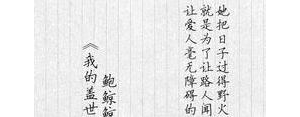 她把日子过得野火
就是为了让路人闻
让爱人毫无障碍的
鲍鲸鲸
《我的盖世